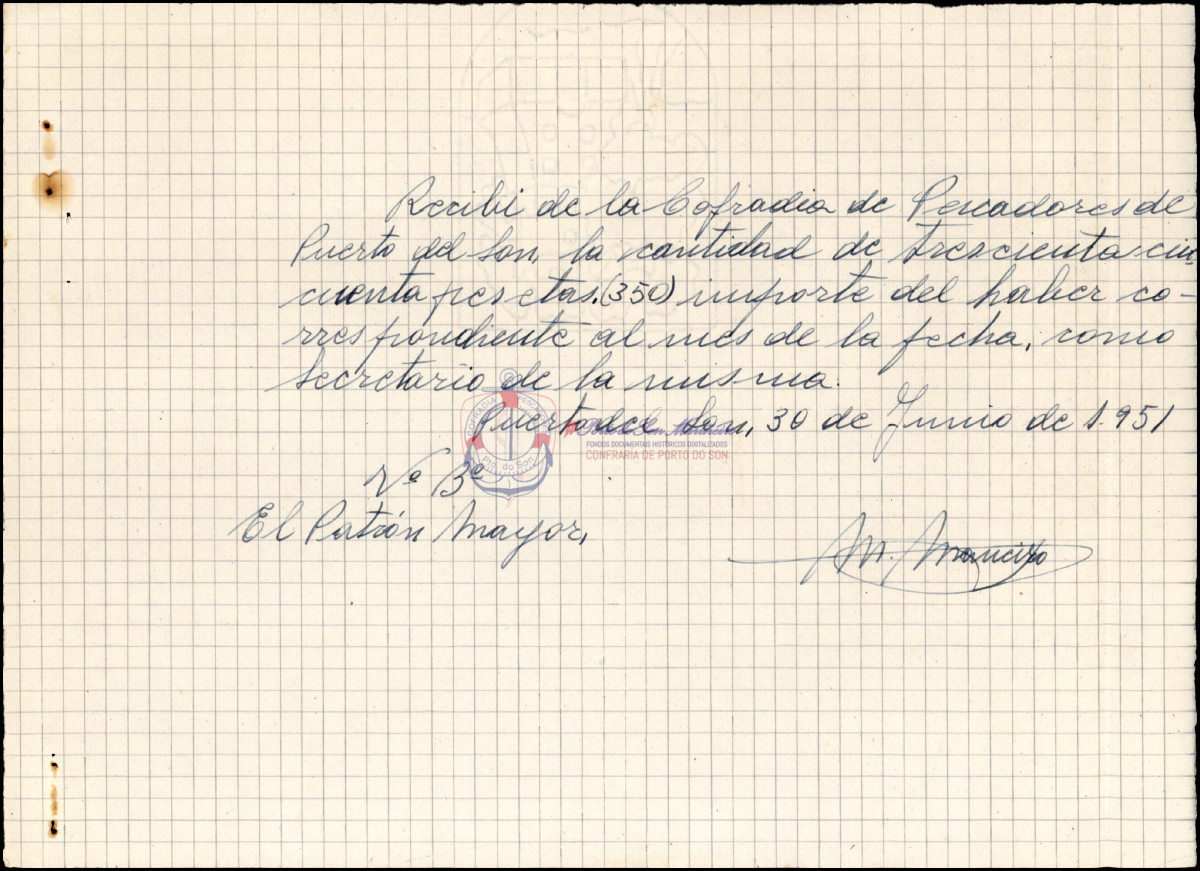 Recibi de la Cofradia de Pescadores de
Puerto del Son, la cantidad de trescienta cin-
cuenta pesetas.(350) importe del haber co-
rrespondiente al mes de la fecha, como
Secretario de la misma.
Puerto del Son, 30 de Junio de 1.951
Vº Bº
El Patrón Mayor,
COFRADIA
Pto. do Son
FONDOS DOCUMENTAIS HISTÓRICOS DIXITALIZADOS
CONFRARÍA DE PORTO DO SON